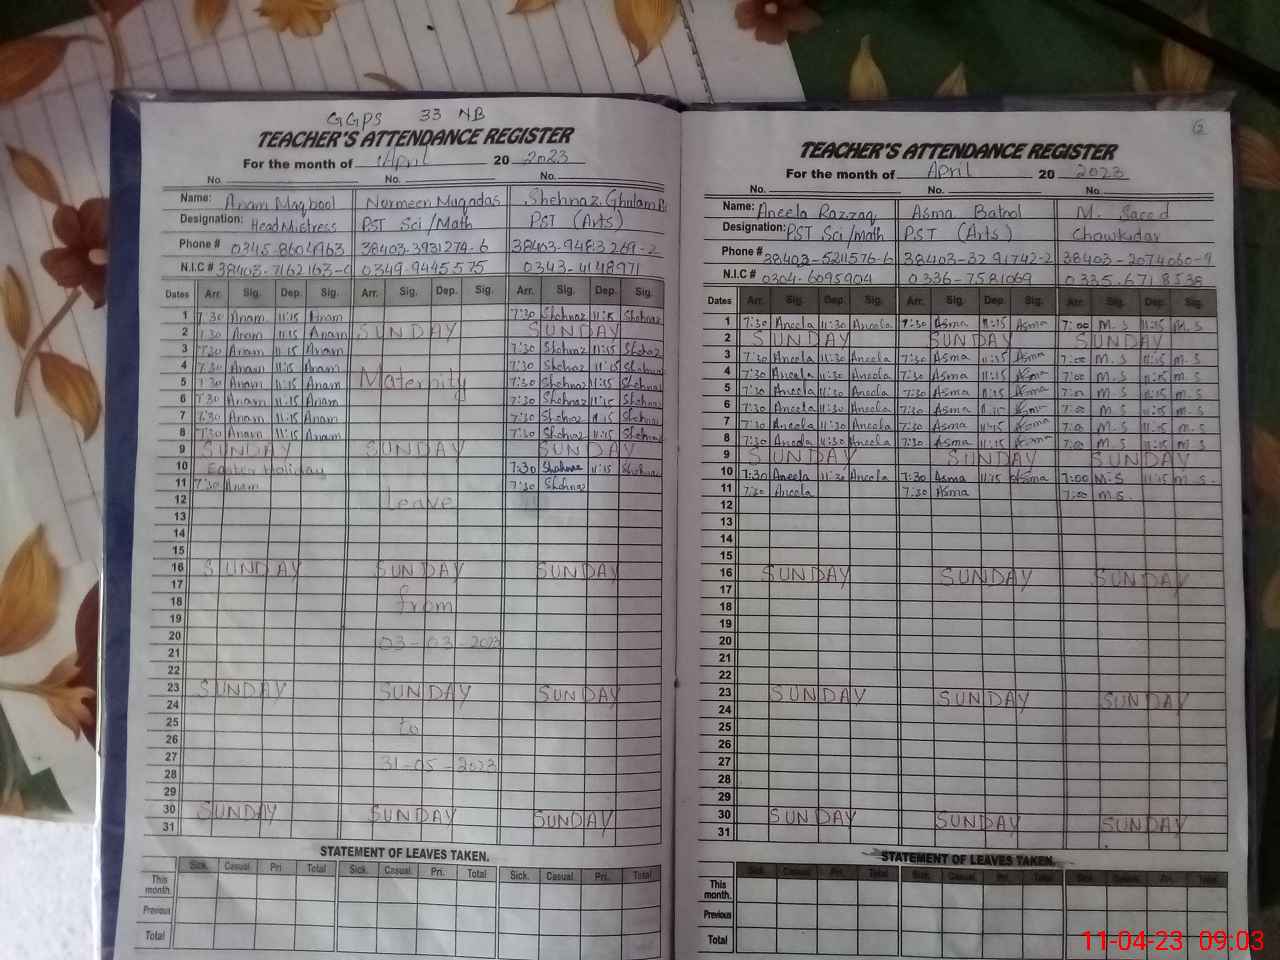 GGPS 33 NB
TEACHER'S ATTENDANCE REGISTER
For the month of April 20 2023
No. No. No.
Name: Anam Maqbool Nurmeen Muqadas Shehnaz Ghulam
Designation: HeadMistress PST Sci/Math PST (Arts)
Phone # 0345-8604963 38403-3931274-6 38403-9483269-2
N.I.C # 38403-7162163-0 0349-9445575 0343-4148971
Dates Arr. Sig. Dep. Sig. Arr. Sig. Dep. Sig. Arr. Sig. Dep. Sig.
1 7:30 Anam 11:15 Anam 7:30 Shehnaz 11:15 Shehnaz
2 7:30 Anam 11:15 Anam SUNDAY SUNDAY
3 7:30 Anam 11:15 Anam 7:30 Shehnaz 11:15 Shehnaz
4 7:30 Anam 11:15 Anam 7:30 Shehnaz 11:15 Shehnaz
5 7:30 Anam 11:15 Anam Maternity 7:30 Shehnaz 11:15 Shehnaz
6 7:30 Anam 11:15 Anam 7:30 Shehnaz 11:15 Shehnaz
7 7:30 Anam 11:15 Anam 7:30 Shehnaz 11:15 Shehnaz
8 7:30 Anam 11:15 Anam 7:30 Shehnaz 11:15 Shehnaz
9 SUNDAY SUNDAY SUNDAY
10 Easter Holiday 7:30 Shehnaz 11:15 Shehnaz
11 7:30 Anam 7:30 Shehnaz
12 Leave
13
14
15
16 SUNDAY SUNDAY SUNDAY
17
18 from
19
20 03-03-2023
21
22
23 SUNDAY SUNDAY SUNDAY
24
25 to
26
27 31-05-2023
28
29
30 SUNDAY SUNDAY SUNDAY
31
STATEMENT OF LEAVES TAKEN.
Sick. Casual Pri. Total Sick. Casual. Pri. Total Sick. Casual. Pri. Total
This month.
Previous
Total
TEACHER'S ATTENDANCE REGISTER
For the month of April 20 2023
No. No. No.
Name: Aneela Razzaq Asma Batool M. Saeed
Designation: PST Sci/Math PST (Arts) Chowkidar
Phone # 38403-5211576-6 38403-3291742-2 38403-2074060-9
N.I.C # 0304-6095904 0336-7581069 0335-6718538
Dates Arr. Sig. Dep. Sig. Arr. Sig. Dep. Sig. Arr. Sig. Dep. Sig.
1 7:30 Aneela 11:30 Aneela 7:30 Asma 11:15 Asma 7:00 M.S 11:15 M.S
2 SUNDAY SUNDAY SUNDAY
3 7:30 Aneela 11:30 Aneela 7:30 Asma 11:15 Asma 7:00 M.S 11:15 M.S
4 7:30 Aneela 11:30 Aneela 7:30 Asma 11:15 Asma 7:00 M.S 11:15 M.S
5 7:30 Aneela 11:30 Aneela 7:30 Asma 11:15 Asma 7:00 M.S 11:15 M.S
6 7:30 Aneela 11:30 Aneela 7:30 Asma 11:15 Asma 7:00 M.S 11:15 M.S
7 7:30 Aneela 11:30 Aneela 7:30 Asma 11:15 Asma 7:00 M.S 11:15 M.S
8 7:30 Aneela 11:30 Aneela 7:30 Asma 11:15 Asma 7:00 M.S 11:15 M.S
9 SUNDAY SUNDAY SUNDAY
10 7:30 Aneela 11:30 Aneela 7:30 Asma 11:15 Asma 7:00 M.S 11:15 M.S.
11 7:30 Aneela 7:30 Asma 7:00 M.S.
12
13
14
15
16 SUNDAY SUNDAY SUNDAY
17
18
19
20
21
22
23 SUNDAY SUNDAY SUNDAY
24
25
26
27
28
29
30 SUNDAY SUNDAY SUNDAY
31
STATEMENT OF LEAVES TAKEN.
Sick. Casual Pri. Total Sick. Casual. Pri Total Sick. Pri. Total
This month.
Previous
Total
11-04-23 09:03